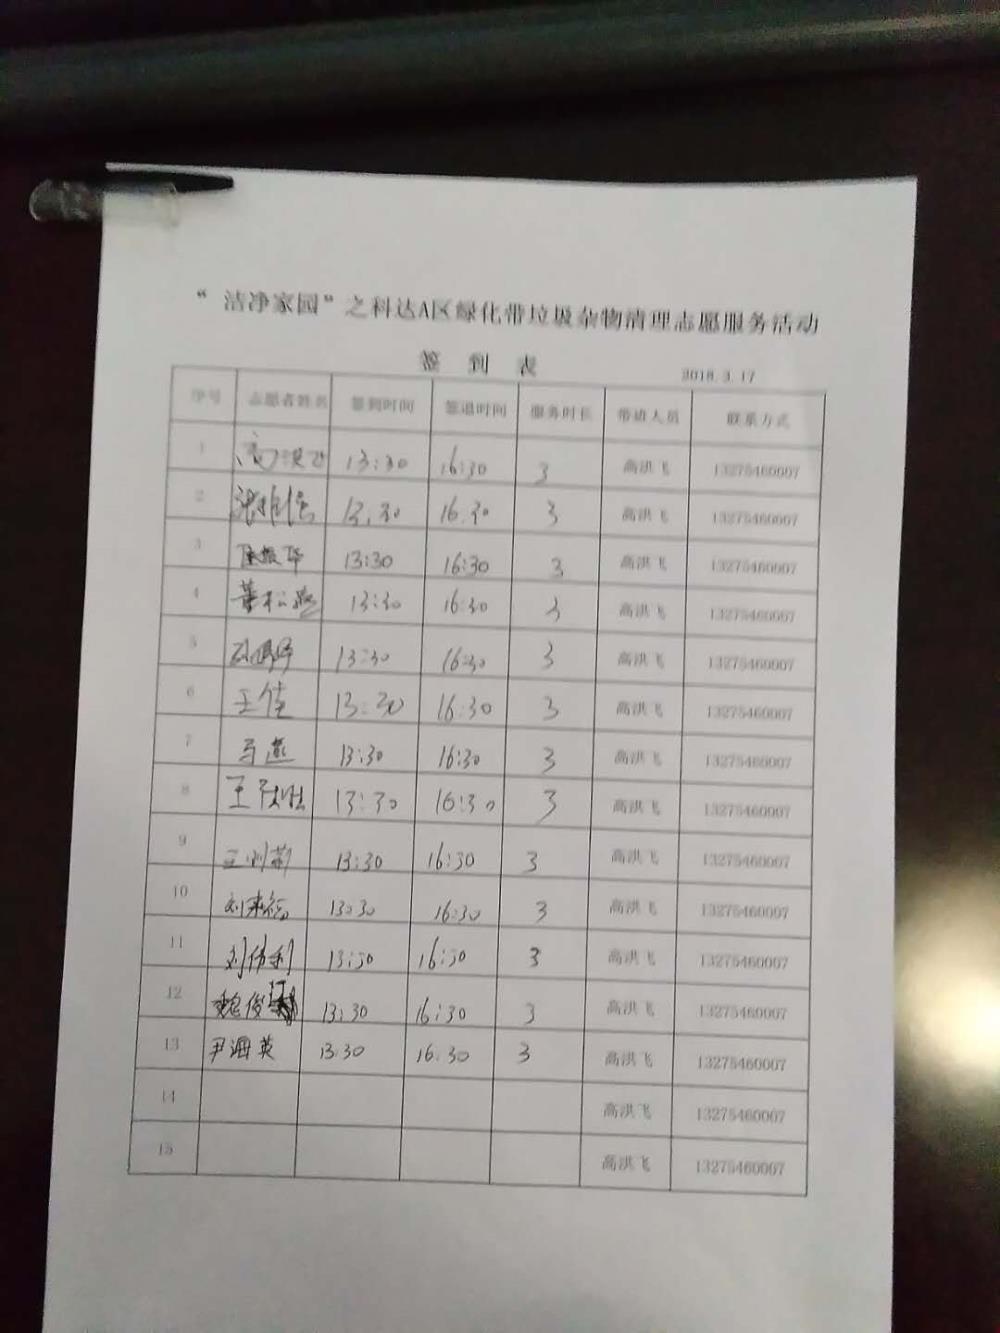 “洁净家园”之科达A区绿化带垃圾杂物清理志愿服务活动
签 到 表
2018.3.17
序号 志愿者姓名 签到时间 签退时间 服务时长 带动人员 联系方式
1 高洪飞 13:30 16:30 3 高洪飞 13275460007
2 13.30 16.30 3 高洪飞 13275460007
3 13:30 16:30 3 高洪飞 13275460007
4 13:30 16:30 3 高洪飞 13275460007
5 13:30 16:30 3 高洪飞 13275460007
6 王佳 13:30 16:30 3 高洪飞 13275460007
7 马燕 13:30 16:30 3 高洪飞 13275460007
8 王 13:30 16:30 3 高洪飞 13275460007
9 王 13:30 16:30 3 高洪飞 13275460007
10 刘来福 13:30 16:30 3 高洪飞 13275460007
11 刘伟利 13:30 16:30 3 高洪飞 13275460007
12 魏俊 13:30 16:30 3 高洪飞 13275460007
13 尹海英 13:30 16:30 3 高洪飞 13275460007
14 高洪飞 13275460007
15 高洪飞 13275460007